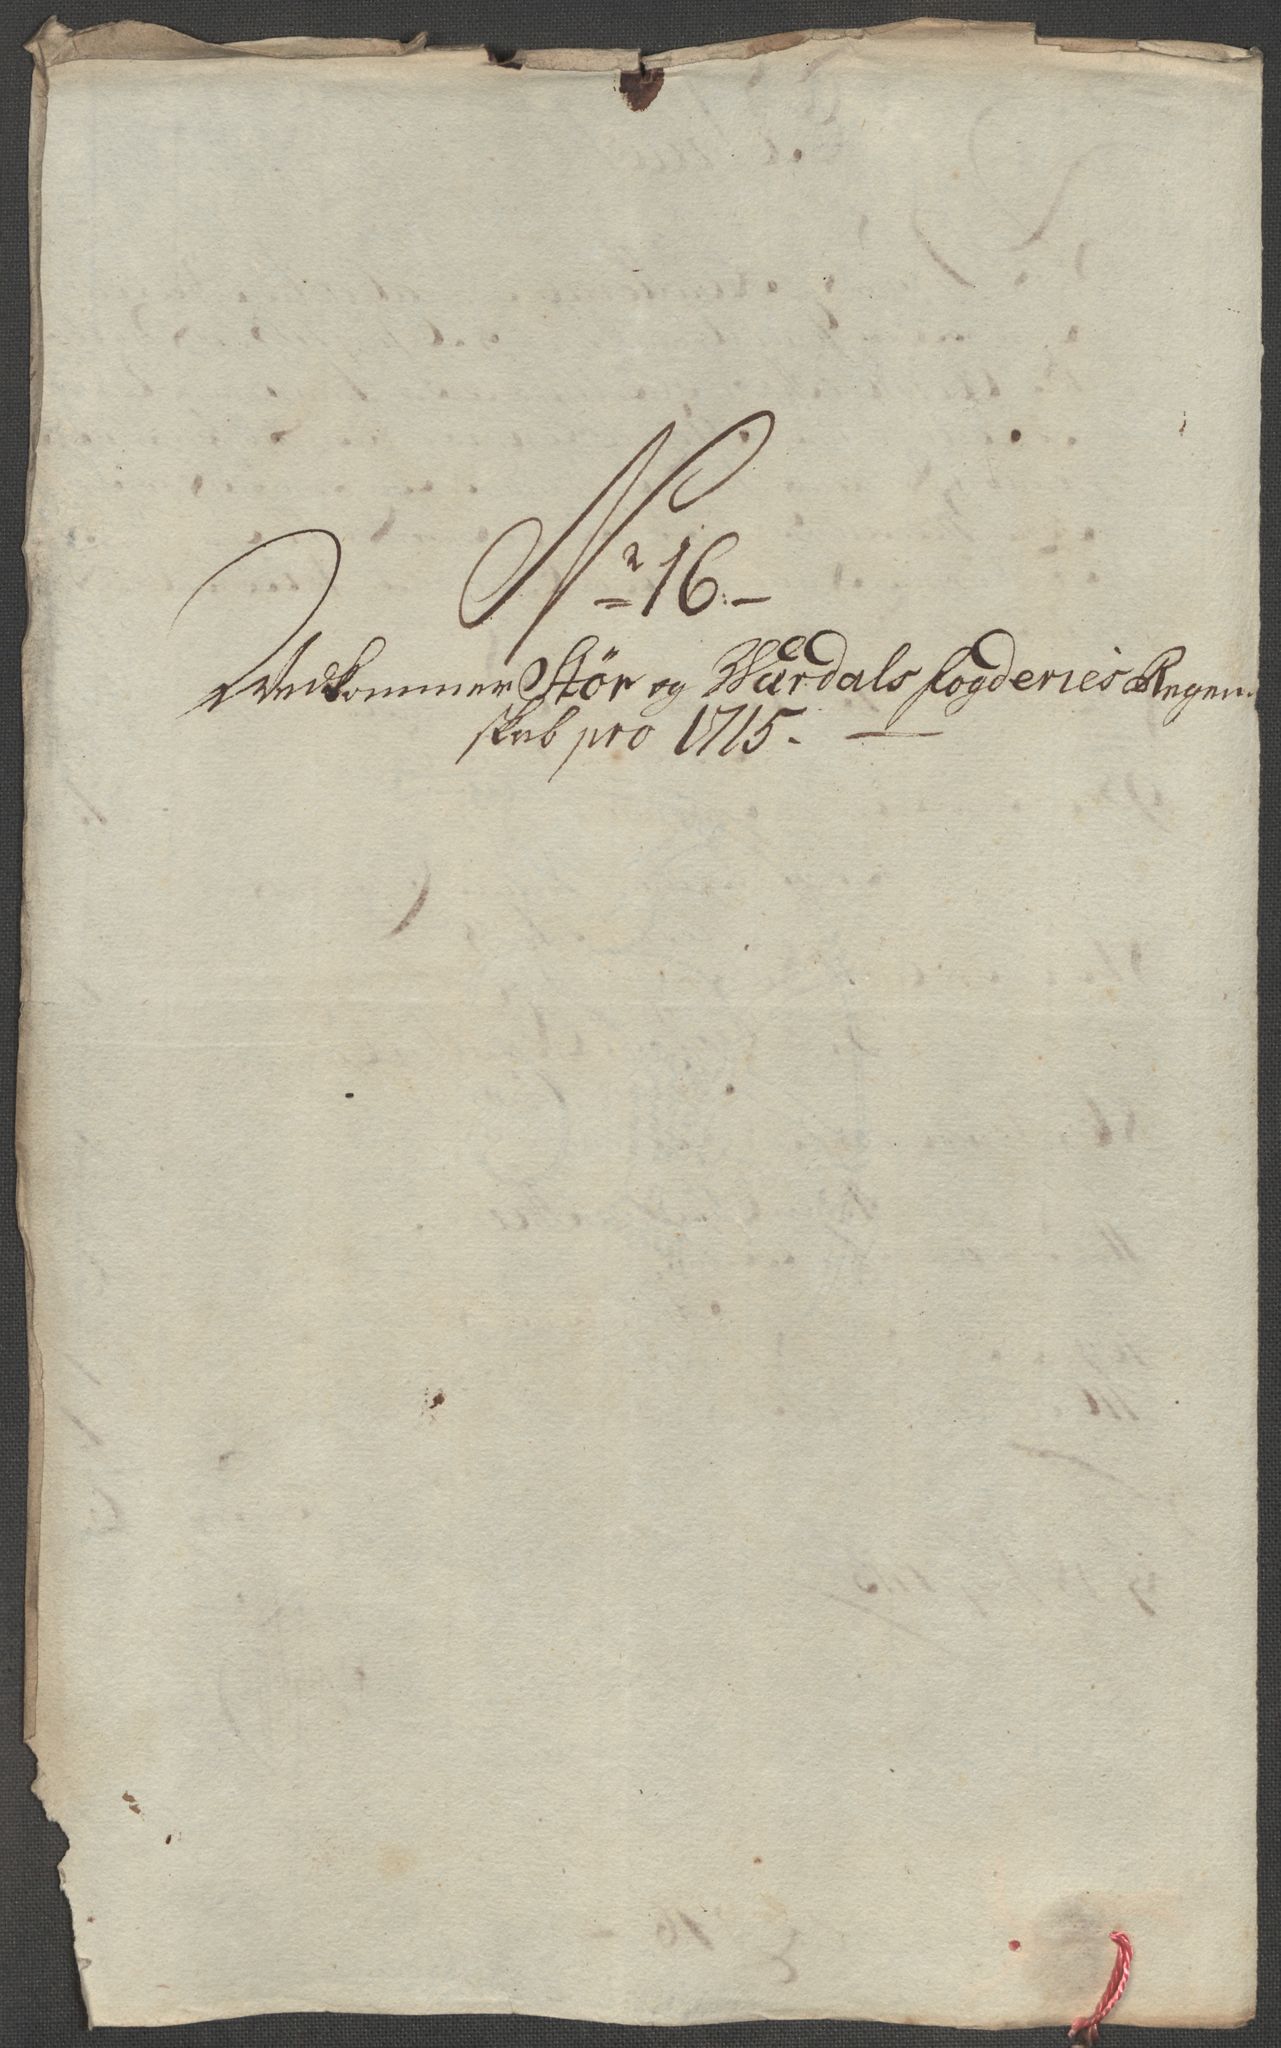 No 16.
Vedkommer Stör og Værdals fogderies Regen-
skab pro 1715.